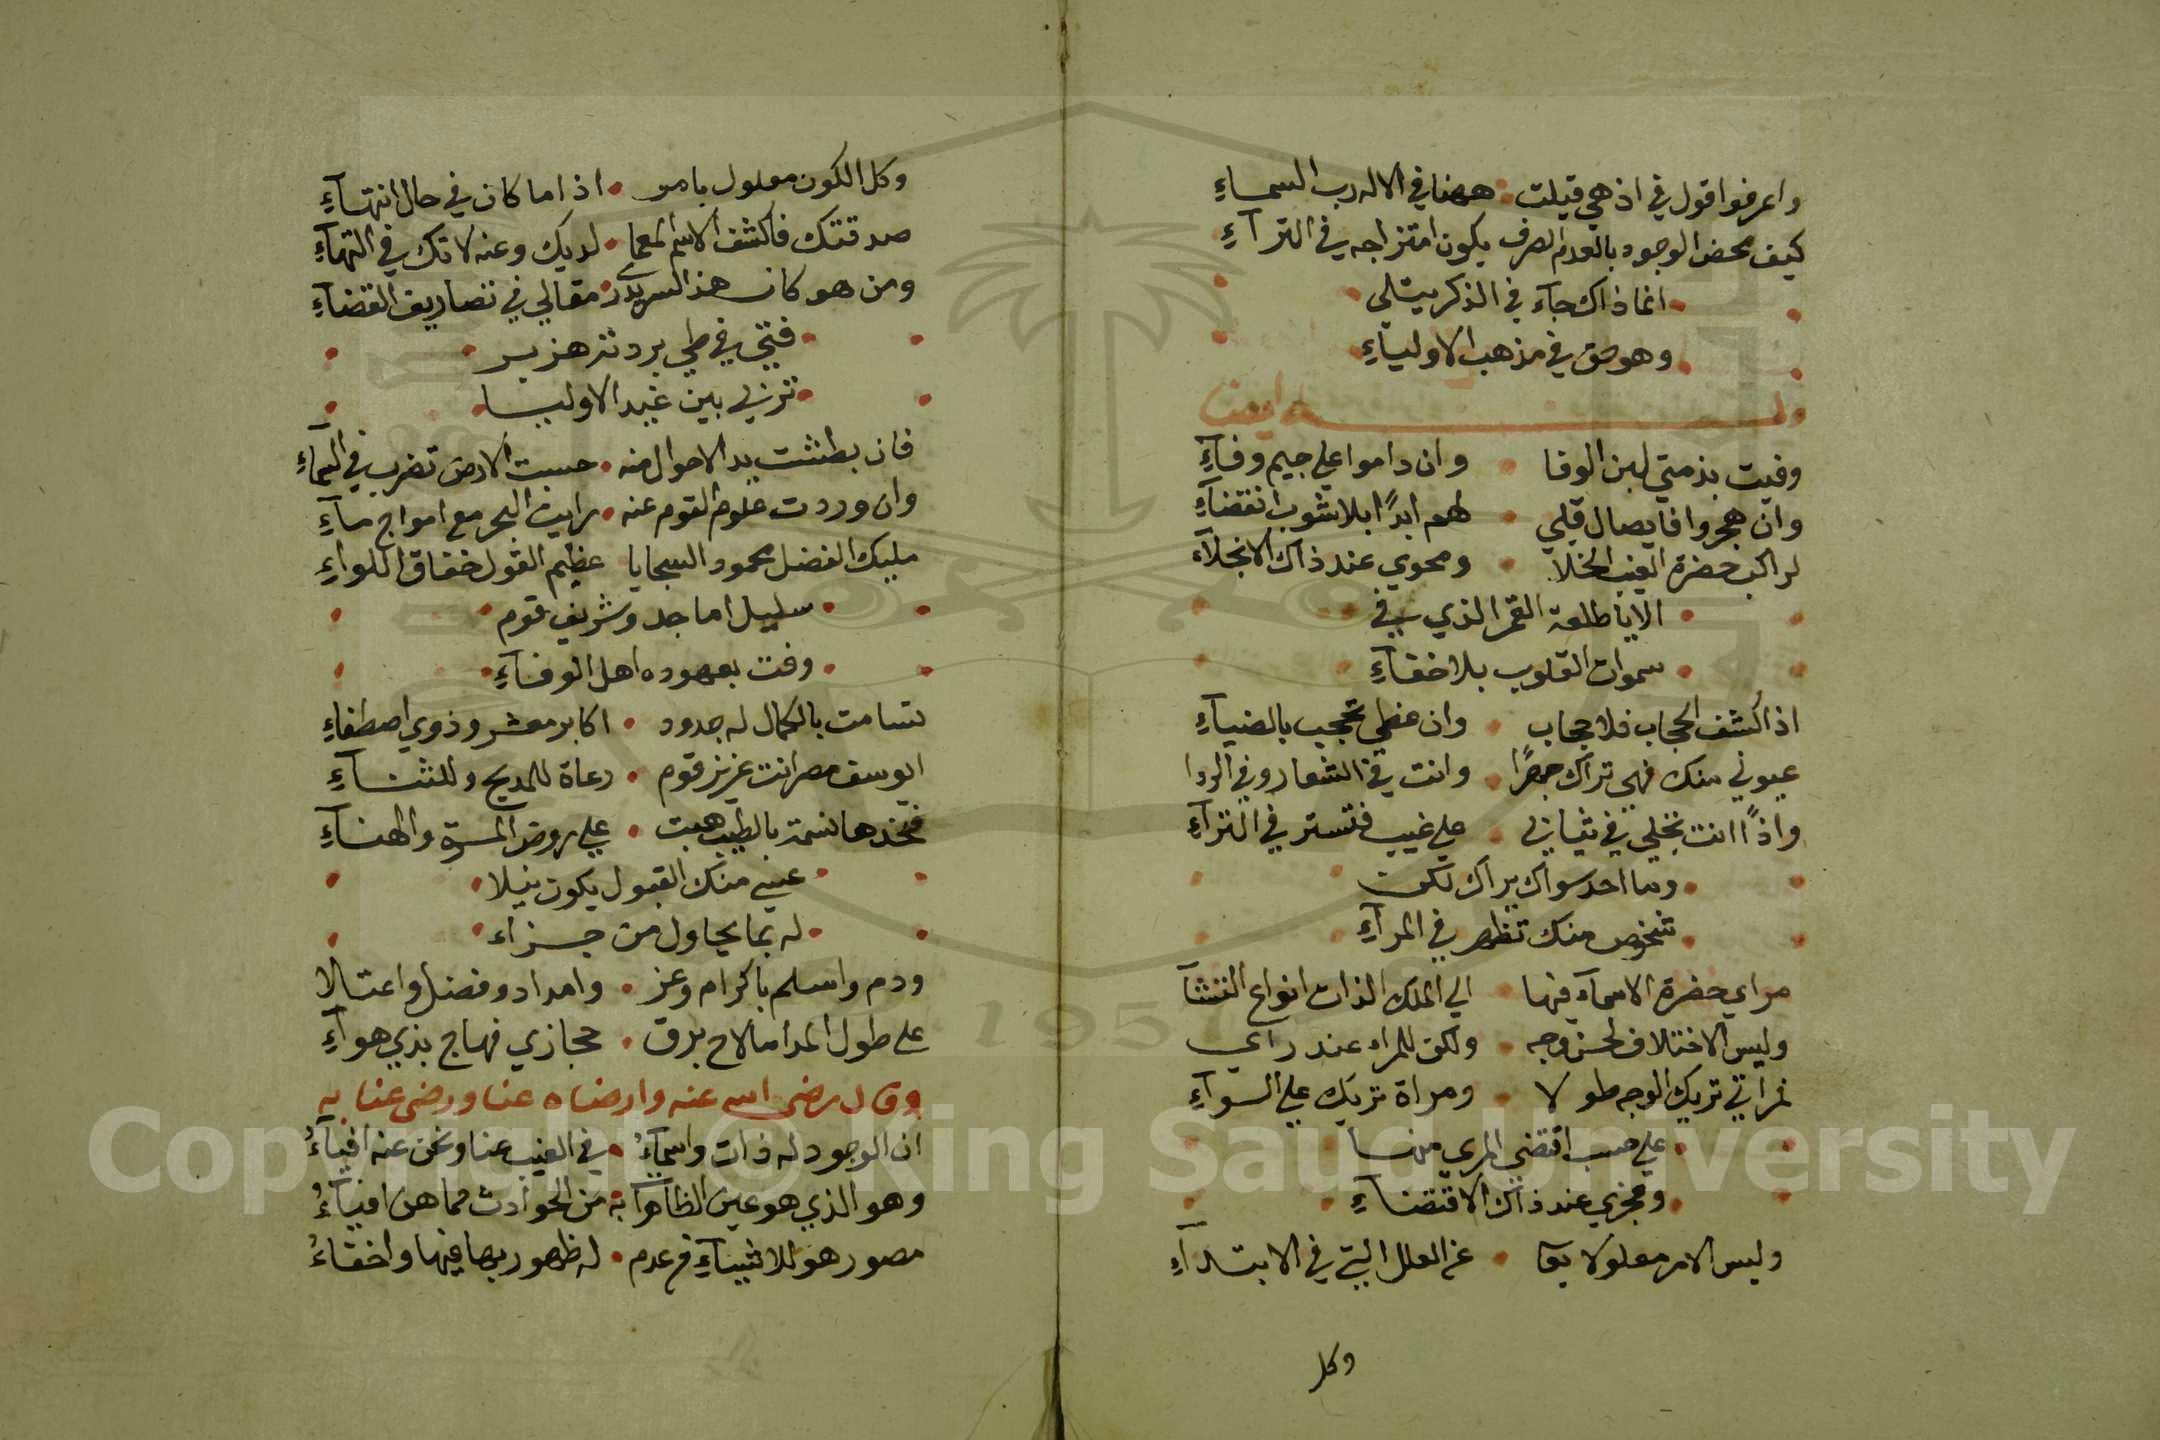 واعرفوا قول في اذ هي قيلت ههنا في الاله رب السماءِ
كيف محض الوجود بالعدم الصرف يكون امتزاجه في التراءِ
انما ذاك جآء في الذكر يتلى
وهو حق في مذهب الاوليآءِ
وله ايضا
وفيت بذمتي لبن الوفا وان داموا علي جيم وفآءِ
وان هجروا فايصال قلبي لهم ابدًا بلا شوب انقضآءِ
لراكب حضرة الغيب الخلا ومحوي عند ذاك الانجلآء
الا يا طلعة القمر الذي في
سموات القلوب بلا خفآءِ
اذا كشف الحجاب فلا حجاب وان غطي تحجب بالضيآءِ
عيوني منك فهي تراك جهرًا وانت في الشعار وفي الردا
واذًا انت تجلي في ثيابي علي غيب فتستر في التراءِ
وما احد سواك يراك لكن
شخوص منك تظهر في المرآءِ
مراي حضرة الاسمآء فيها الي الملك الذات انواع النشآ
وليس الاختلاف لحسن وجه ولكن للمراء عند رائي
فمراتي تريك الوجه طولا ومراة تريك علي السوآءِ
علي حسب اقتضي المري منها
ومجزي عند ذاك الاقتضآءِ
وليس الامر معلولا بقا عن العلل التي في الابتدآءِ
وكل
وكل الكون معلول بامر اذا ما كان في حال انتهآءِ
صدقتك فاكشف الاسم المعما لديك وعنه لا تك في التهآءِ
ومن هو كان هذا السر يدري مقالي في تصاريف القضآءِ
فتي في طي بردته هزبر
تزني بين غيد الاوليا
فان بطشت يد الاحوال منه حسبت الارض تضرب في السمآءِ
وان وردت علوم القوم عنه رايت البحر مع امواج مآءِ
مليك الفضل محمود السجايا عظيم القول خفاق اللواءِ
سليل اماجد وشريف قوم
وفت بعهوده اهل الوفآءِ
تسامت بالكمال له جدود اكابر معشر وذوي اصطفاءِ
ايوسف مصر انت عزيز قوم دعاة للمديح وللثنآءِ
فخذها نسمة بالطيب هبت علي روض المسرة والهنآءِ
عسي منك القبول يكون نيلا
له بما يحاول من جزاء
ودم واسلم باكرام وعز وامداد وفضل واعتلا
علي طول المدا ما لاح برق حجازي فهاج بذي هوآءِ
وقال رضي الله عنه وارضاه عنا ورضي عنا به
ان الوجود له ذات واسمآءُ في الغيب عنا ونحن عنه افيآءُ
وهو الذي هو عين الظاهر به من الحوادث مما هن افيآءُ
مصور هو للاشيآءِ في عدم له ظهور بها فيها واخفاءُ
Copyright © King Saud University
1957